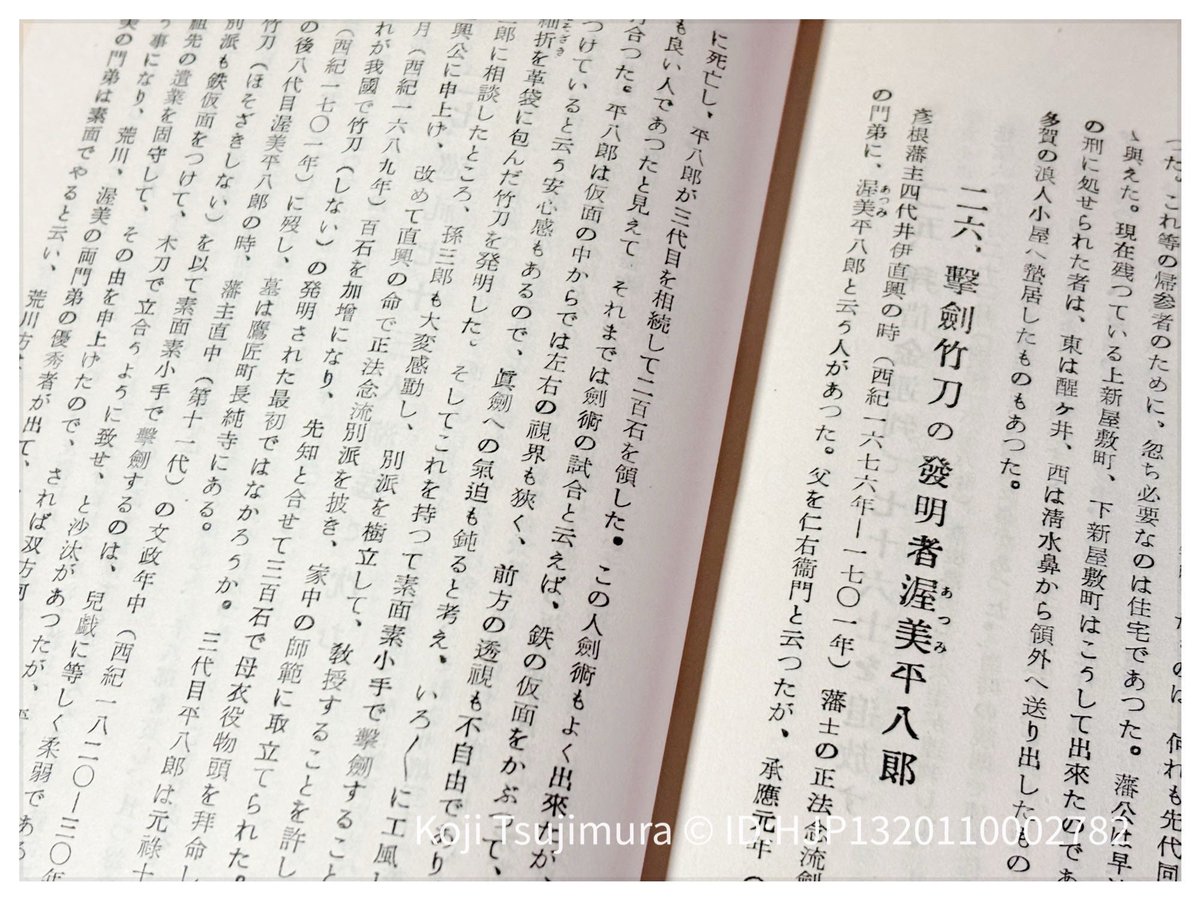 つた。これ等の帰参者のために、忽ち必要なのは住宅であつた。藩公は早
与えた。現在残つている上新屋敷町、下新屋敷町はこうして出來たのであ
の刑に処せられた者は、東は醒ヶ井、西は清水鼻から領外へ送り出したもの
多賀の浪人小屋へ蟄居したものもあつた。
二六、擊劍竹刀の發明者渥美平八郎
あつみ
彦根藩主四代井伊直興の時（西紀一六七六年―一七〇一年）藩士の正法念流劍
の門弟に、渥美平八郎と云う人があつた。父を仁右衞門と云つたが、承應元年（
あつみ
に死亡し、平八郎が三代目を相続して二百石を領した。この人劍術もよく出來たが、
も良い人であつたと見えて、それまでは劍術の試合と云えば、鉄の仮面をかぶって、
合つた。平八郎は仮面の中からでは左右の視界も狭く、前方の透視も不自由であり
つけていると云う安心感もあるので、眞劍への氣迫も鈍ると考え、いろ〱に工風し
細折を革袋に包んだ竹刀を発明した。そしてこれを持つて素面素小手で擊劍すること
そざき
郎に相談したところ、孫三郎も大変感動し、別派を樹立して、敎授することを許し
興公に申上げ、改めて直興の命で正法念流別派を披き、家中の師範に取立てられた。
月（西紀一六八九年）百石を加增になり、先知と合せて三百石で母衣役物頭を拜命し
れが我國で竹刀（しない）の発明された最初ではなかろうか。三代目平八郎は元祿十
（西紀一七〇一年）に歿し、墓は鷹匠町長純寺にある。
の後八代目渥美平八郎の時、藩主直中（第十一代）の文政年中（西紀一八二〇―三〇年
竹刀（ほそざきしない）を以て素面素小手で擊劍するのは、兒戯に等しく柔弱である
別派も鉄仮面をつけて、木刀で立合うように致せ、と沙汰があつたが、
祖先の遺業を固守して、その由を申上げたので、されば双方
う事になり、荒川、渥美の両門弟の優秀者が出て、
の門弟は素面でやると云い、荒川方は
Koji Tsujimura © ID:HJP1320110002782